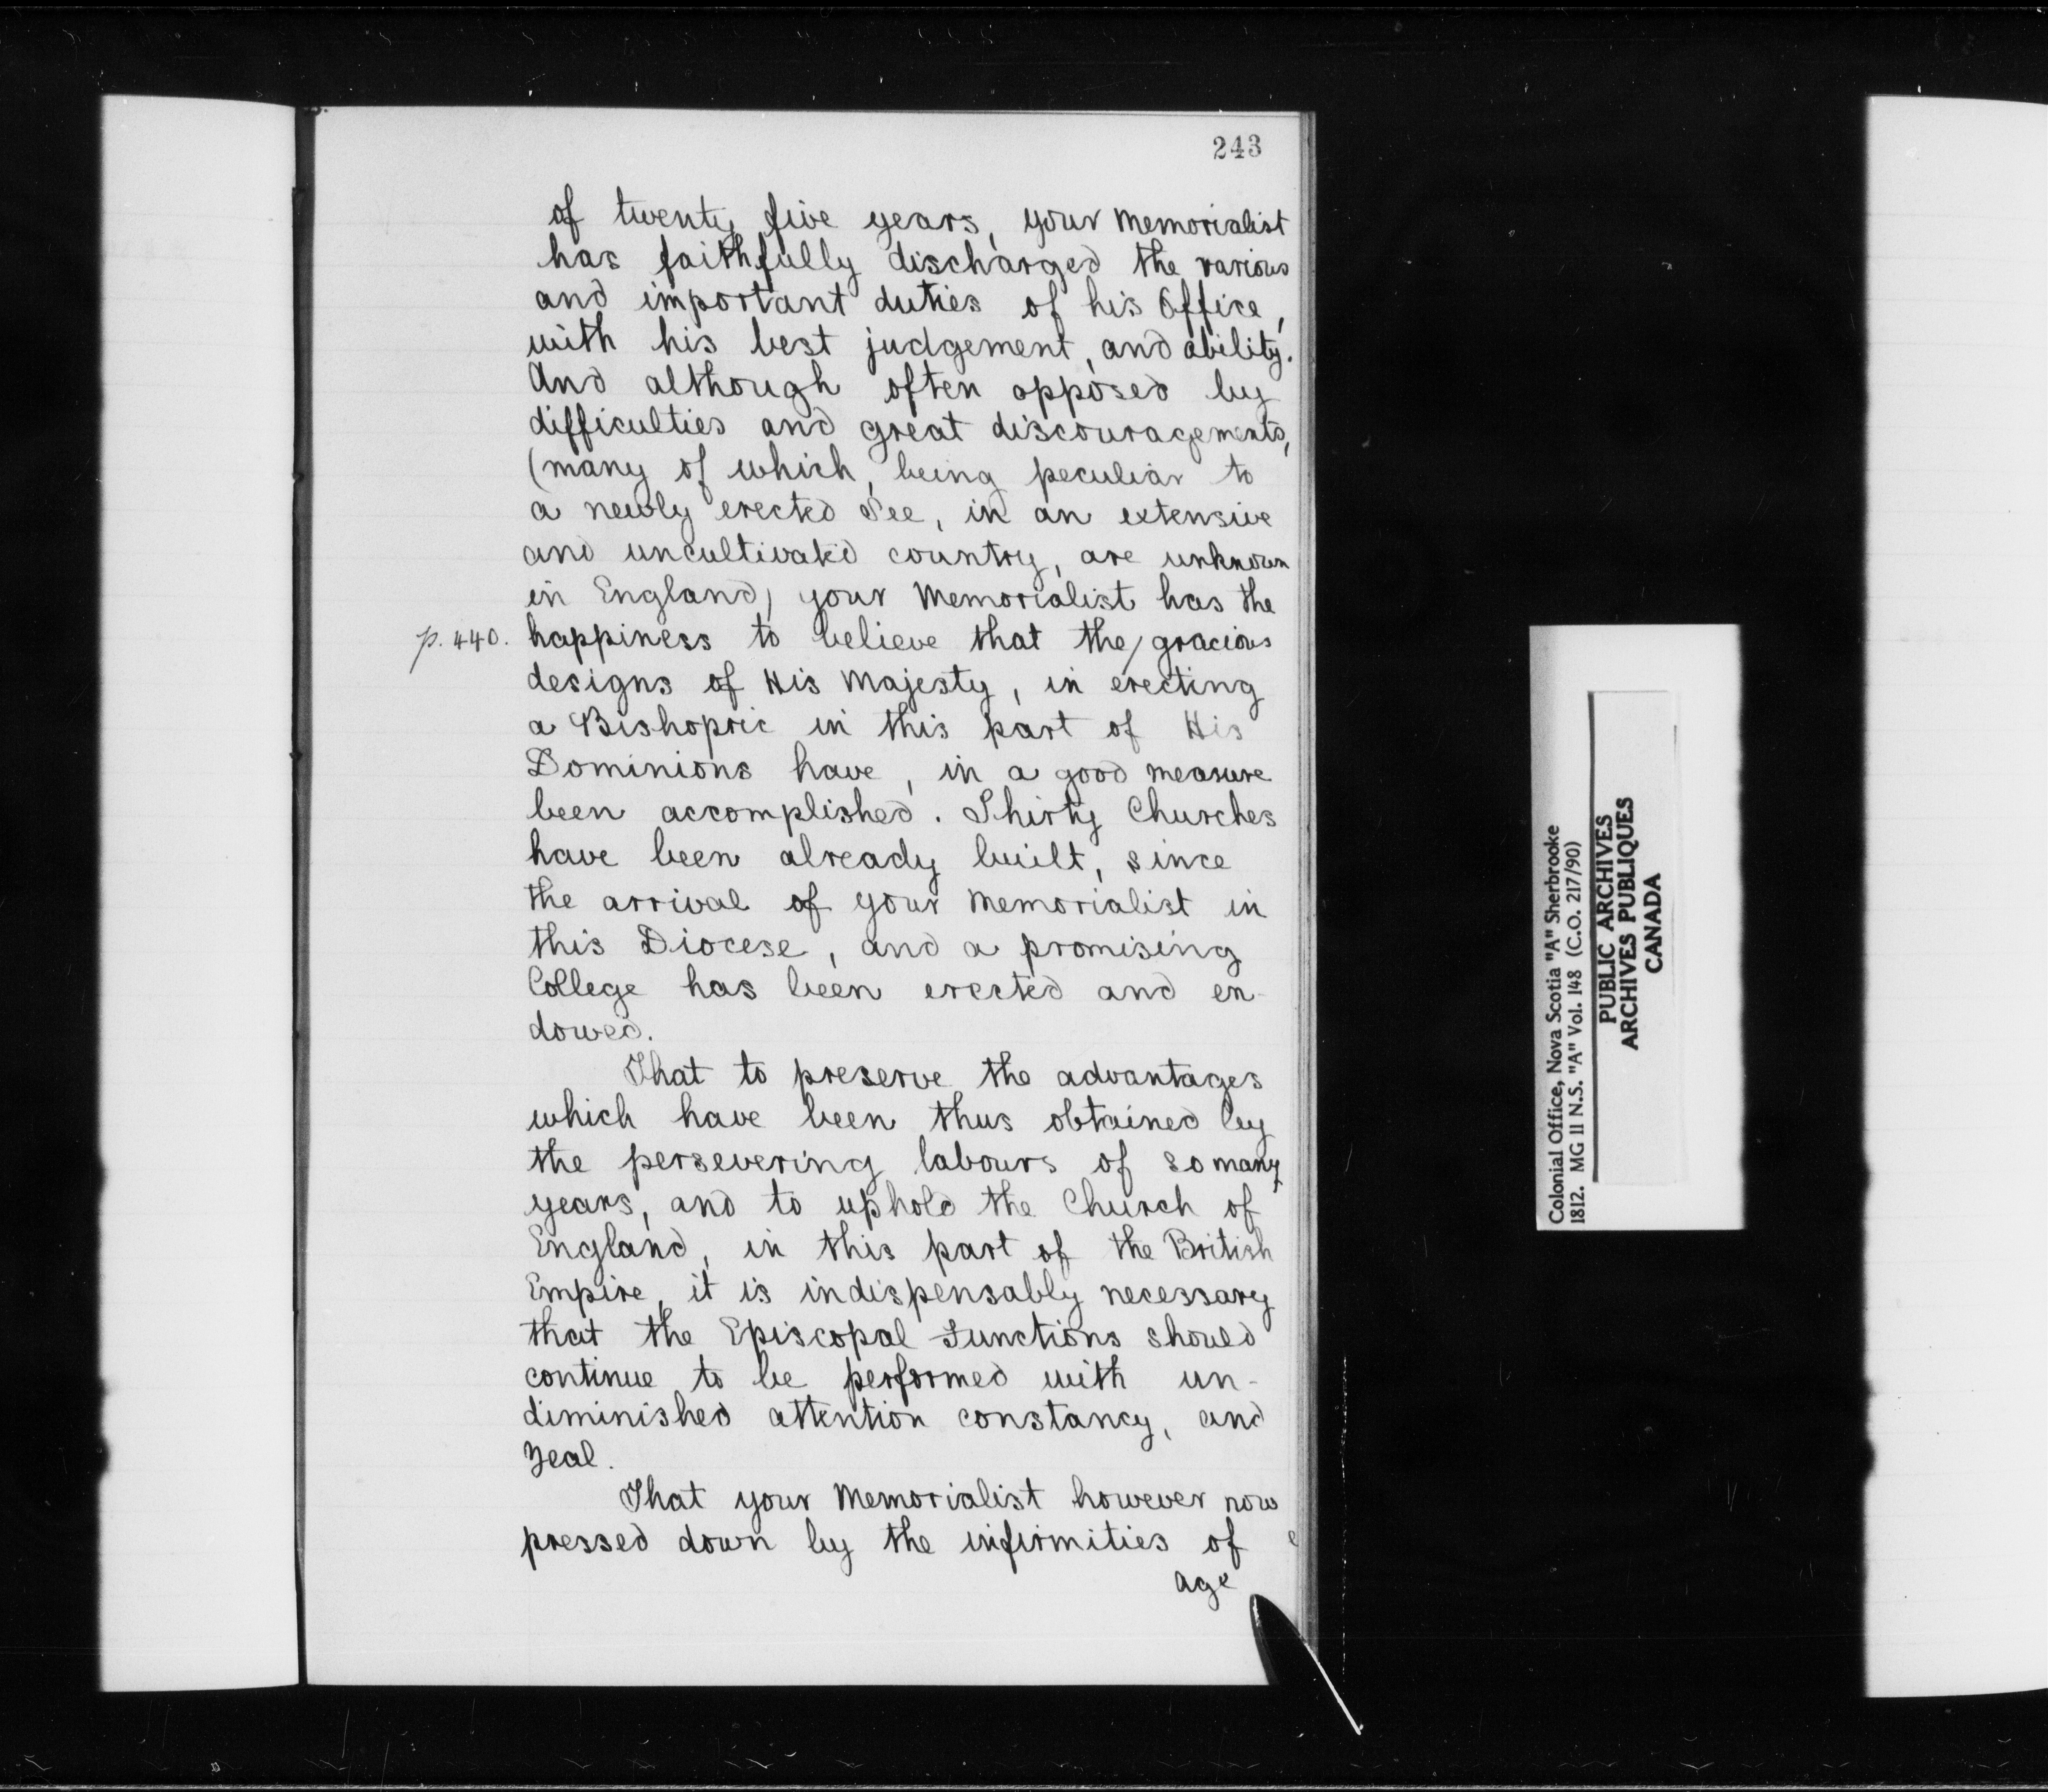 243
of twenty five years, your Memorialist
has faithfully discharged the various
and important duties of his Office,
with his best judgement, and ability.
And although often opposed by
difficulties and great discouragements,
(many of which, being peculiar to
a newly erected See, in an extensive
and uncultivated country, are unknown
in England) your Memorialist has the
p. 440. happiness to believe that the/gracious
designs of His Majesty, in erecting
a Bishopric in this part of His
Dominions have, in a good measure
been accomplished. Thirty Churches
have been already built, since
the arrival of your Memorialist in
this Diocese, and a promising
College has been erected and en-
dowed.
That to preserve the advantages
which have been thus obtained by
the persevering labours of so many
years, and to uphold the Church of
England, in this part of the British
Empire, it is indispensably necessary
that the Episcopal Functions should
continue to be performed with un-
diminished attention constancy, and
zeal.
That your Memorialist however now
pressed down by the infirmities of
age
Colonial Office, Nova Scotia "A" Sherbrooke
1812. MG 11 N.S. "A" Vol. 148 (C.O. 217/90)
PUBLIC ARCHIVES
ARCHIVES PUBLIQUES
CANADA